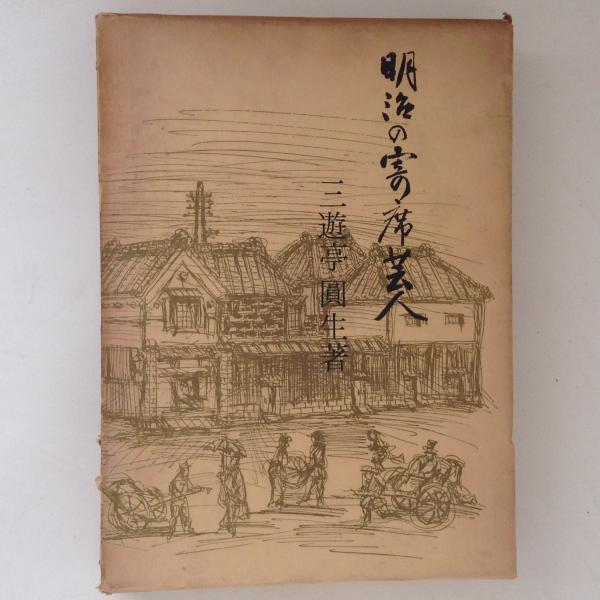 明治の寄席芸人
三遊亭圓生著